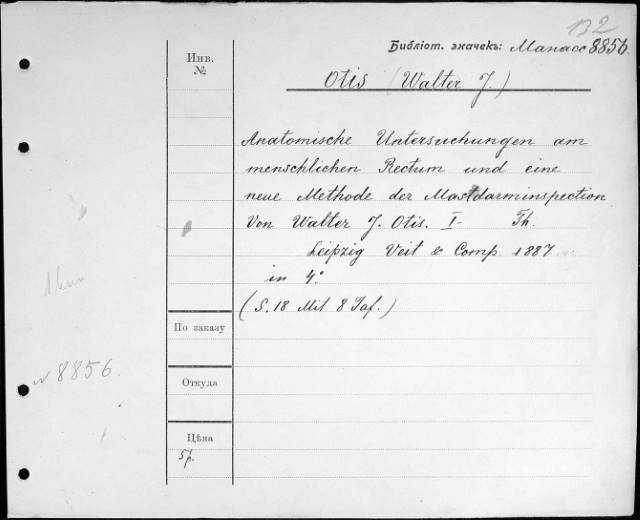 132
Библіот. значекъ: Манасс 8856.
Инв.
№
Otis (Walter J.)
Anatomische Untersuchungen am
menschlichen Rectum und eine
neue Methode der Mastdarminspection
Von Walter J. Otis. I- Th.
Leipzig Veit & Comp. 1887
in 4°
(S. 18 Mit 8 Taf.)
По заказу
№ 8856.
Откуда
Цѣна
5р.